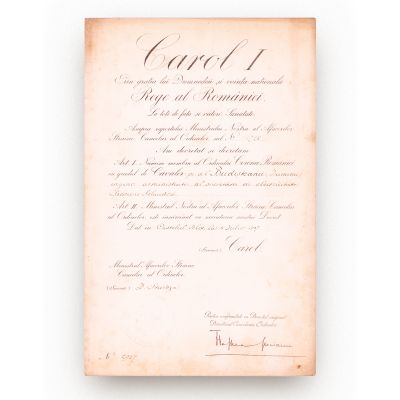 Carol I
Prin gratia lui Dumnedeu si vointa nationala
Rege al României.
La toti de fata si viitori Sanatate.
Asupra raportului Ministrului Nostru al Afacerilor
Straine Cancelar al Ordinelor sub No
Am decretat si decretam
Art I. Numim membru al Ordinului Coroana României
in gradul de Cavaler pe d-l
Art II. Ministrul Nostru al Afacerilor Straine Cancelar
al Ordinelor, este insarcinat cu executarea acestui Decret
Dat in Castelul
(Semnat) Carol
Ministrul Afacerilor Straine
Cancelar al Ordinelor.
(Semnat) D. Sturdza
Pentru conformitate cu Decretul original
Directorul Cancelariei Ordinelor
No